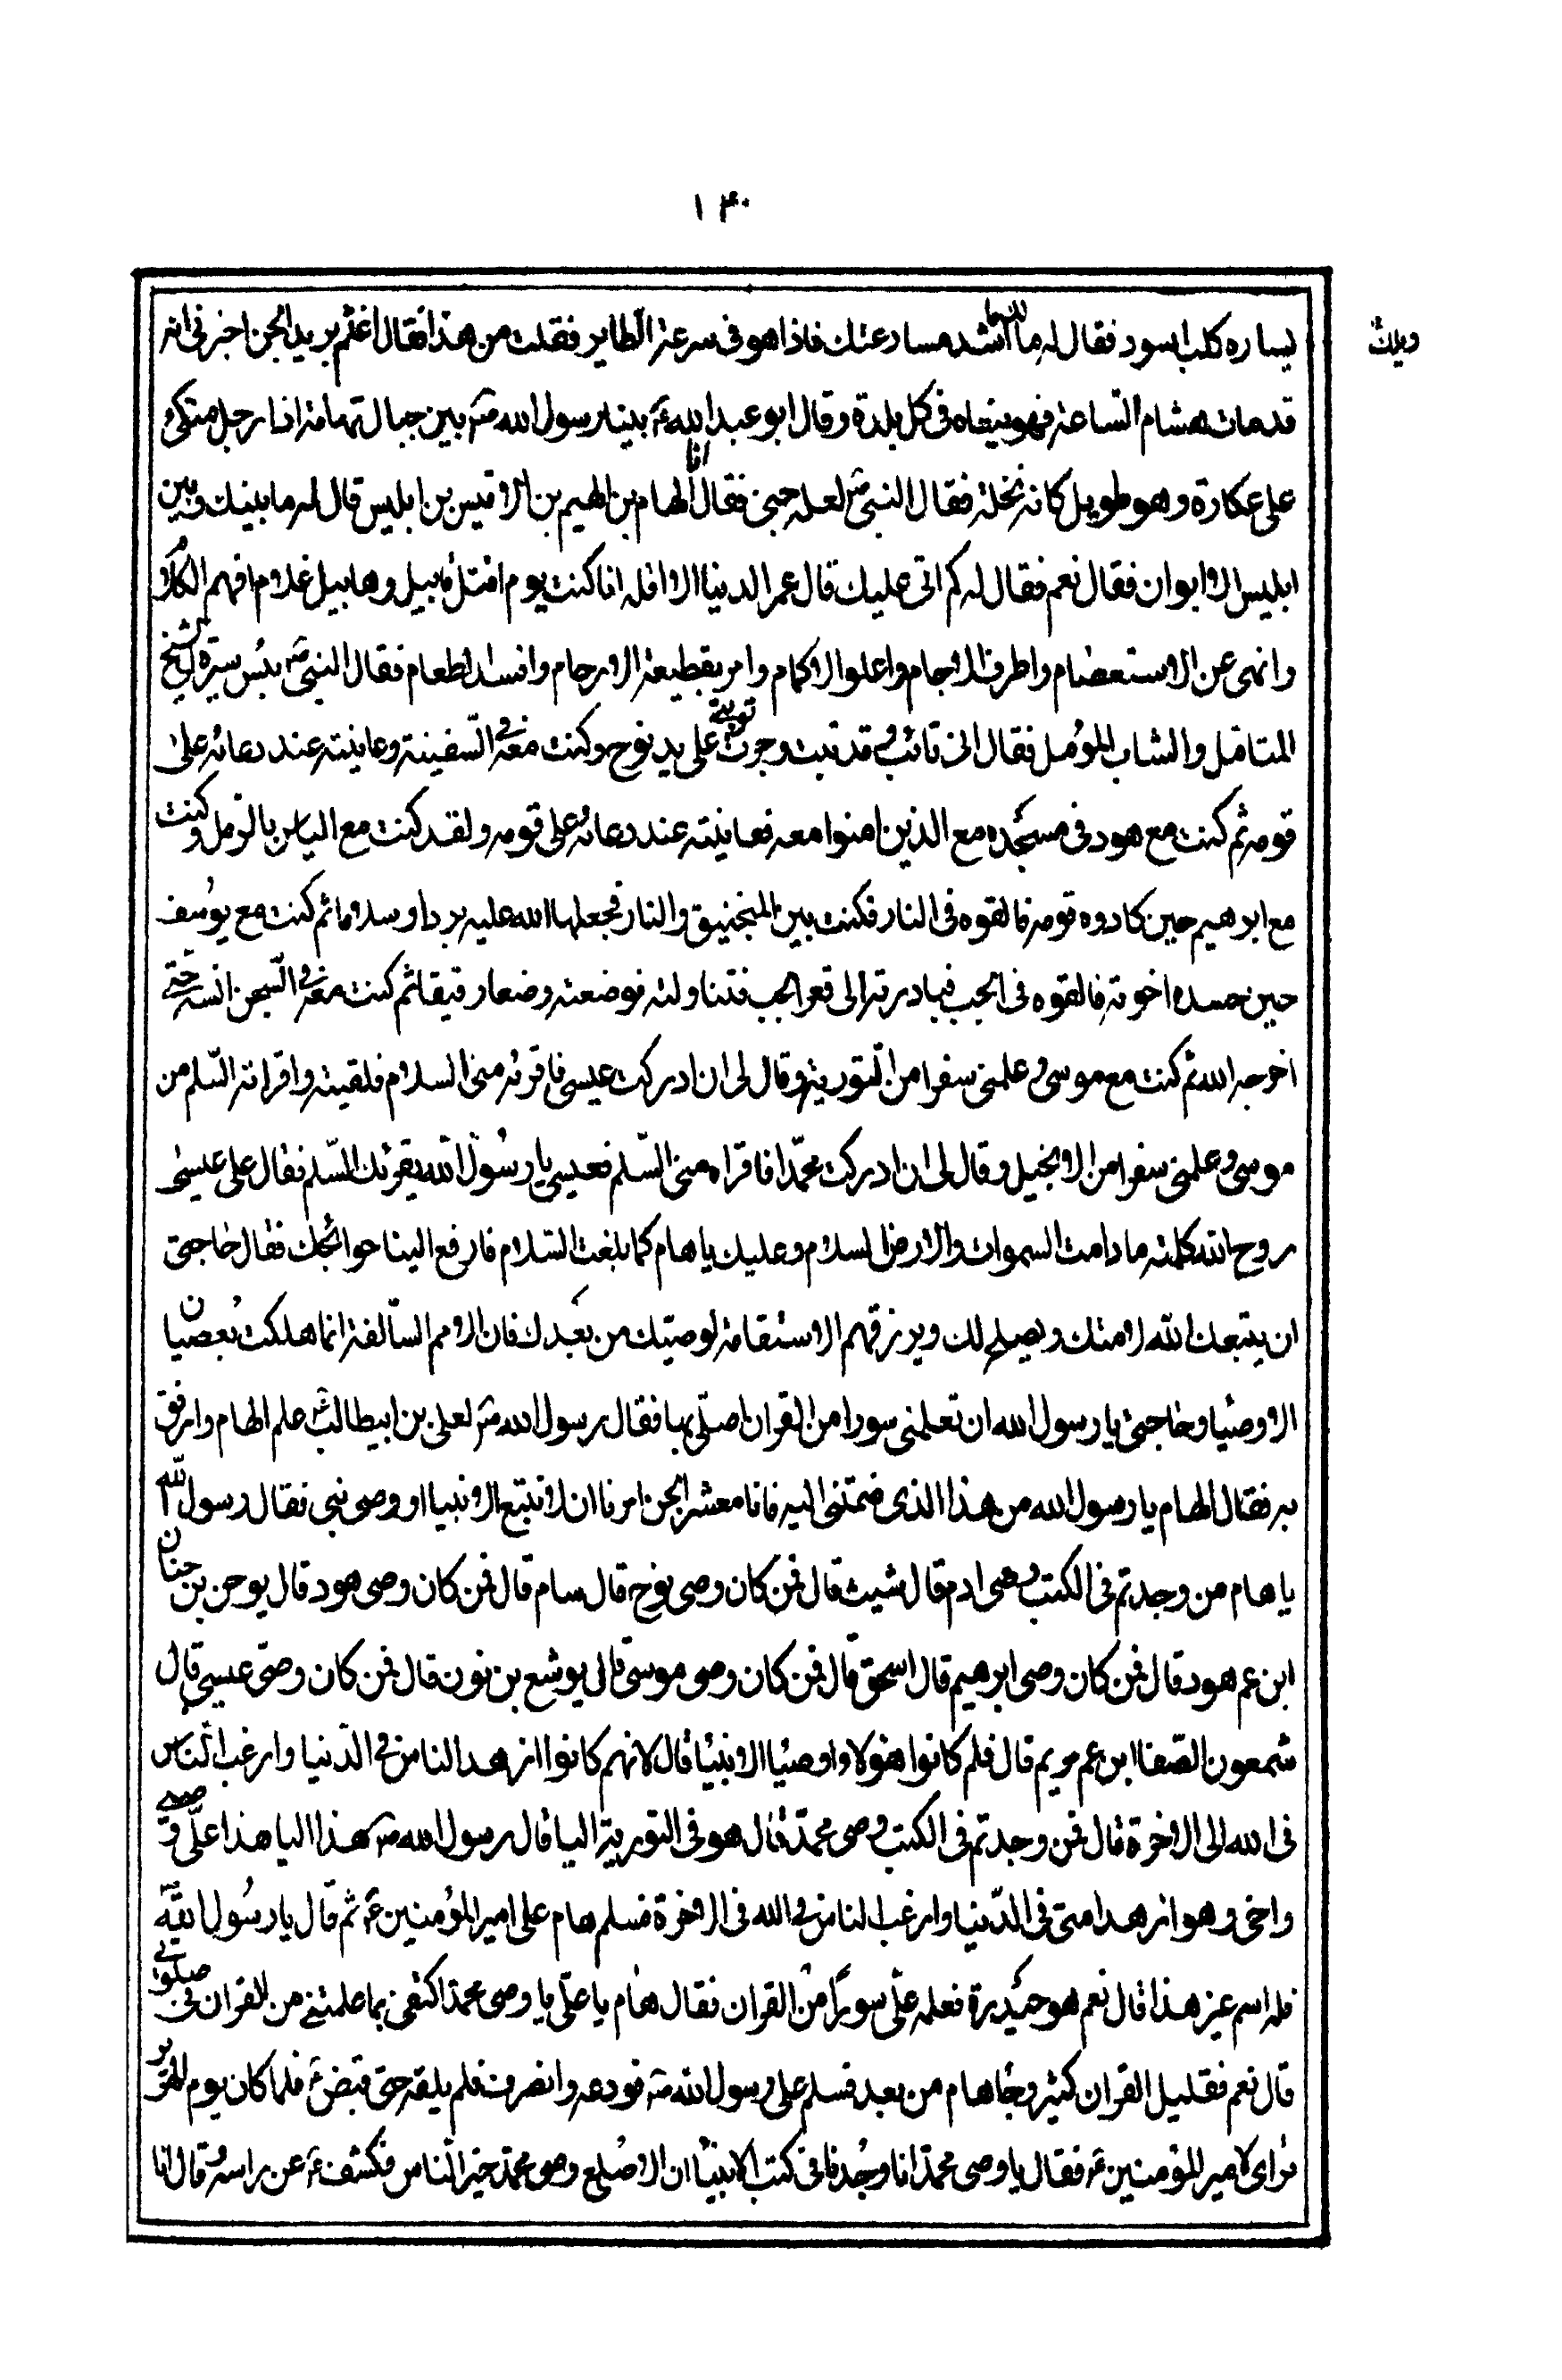 ١٤٠
يساره كلب اسود فقال له ما لك ما اشد مسارعتك فاذا هو فى سرعة الطاير فقلت من هذا فقال اغثم بريد الجن اخبرنى انه
ويلك
قد مات هشام الساعة فهو ينعاه فى كل بلدة وقال ابو عبد الله ع بينا رسول الله ص بين جبال تهامة اذا رجل متكى
على عكازة وهو طويل كانه نخلة فقال النبى ص لعله جنى فقال انا الهام بن الهيم بن الاقيس بن ابليس قال له ما بينك وبين
ابليس الا ابوان فقال نعم فقال له كم اتى عليك قال عمر الدنيا الا اقله انا كنت يوم اقتتل قابيل وهابيل غلام افهم الكلام
وانهى عن الاستعصام واطرف الاجام واعلوا الاكمام وامر بقطيعة الارحام وافساد الطعام فقال النبى ص بئس سيرة الشيخ
المتاقل والشاب المؤمل فقال انى تائب قد تبت وجرت توبتى على يد نوح وكنت معه فى السفينة وعاينته عند دعائه على
قومه ثم كنت مع هود فى مسجده مع الذين امنوا معه فعاينته عند دعائه على قومه ولقد كنت مع الياس بالرمل وكنت
مع ابرهيم حين كادوه قومه فالقوه فى النار فكنت بين المنجنيق والنار فجعلها الله عليه بردا وسلاما ثم كنت مع يوسف
حين حسده اخوته فالقوه فى الجب فبادرته الى قعر الجب فتناولته فوضعته وضعا رفيقا ثم كنت معه فى السجن انسه حتى
اخرجه الله ثم كنت مع موسى وعلمنى سفرا من التورية وقال لى ان ادركت عيسى فاقرئه منى السلام فلقيته واقراته السلم من
موسى وعلمنى سفرا من الانجيل وقال لى ان ادركت محمدا فاقراه منى السلم فعيسى يا رسول الله يقرئك السلم فقال على عيسى
روح الله كلمته ما دامت السموات والارض السلام وعليك يا هام كما بلغت السلام فارفع الينا حوائجك فقال حاجتى
ان يتبعك الله لامتك ويصلحهم لك ويرزقهم الاستقامة لوصيك من بعدك فان الامم السالفة انما هلكت بعصيان
الاوصيا وحاجتى يا رسول الله ان تعلمنى سورا من القران اصلى بها فقال رسول الله ص لعلى بن ابيطالب علم الهام وارفق
به فقال الهام يا رسول الله من هذا الذى ضمتنى اليه فانا معشر الجن امرنا ان لا نتبع الا نبيا او وصى نبى فقال رسول الله
يا هام من وجدتم فى الكتب وصى ادم قال شيث قال فمن كان وصى نوح قال سام قال فمن كان وصى هود قال يوحن بن حنان
ابن عم هود قال فمن كان وصى ابرهيم قال اسحق قال فمن كان وصى موسى قال يوشع بن نون قال فمن كان وصى عيسى قال
شمعون الصفا ابن عم مريم قال فلم كانوا هؤلاء اوصيا الانبيا قال لانهم كانوا ازهد الناس فى الدنيا وارغب الناس
فى الله الى الاخرة قال فمن وجدتم فى الكتب وصى محمد قال هو فى التورية اليا قال رسول الله ص هذا اليا هذا على وصيى
واخى وهو ازهد امتى فى الدنيا وارغب الناس فى الله فى الاخرة فسلم هام على امير المؤمنين ع ثم قال يا رسول الله
فله اسم غير هذا قال نعم هو حيدرة فعلمه على سورا من القران فقال هام يا على يا وصى محمد اكتفى بما علمتنى من القران فى صلوتى
قال نعم فقليل القران كثير وجا هام من بعد فسلم على رسول الله ص فودعه وانصرف فلم يلقه حتى قبض ع فلما كان يوم الهرير
تراى لامير المؤمنين ع فقال يا وصى محمد انا وجدنا فى كتب الانبيا ان الاصلع وصى محمد خير الناس فكشف ع عن راسه وقال انا